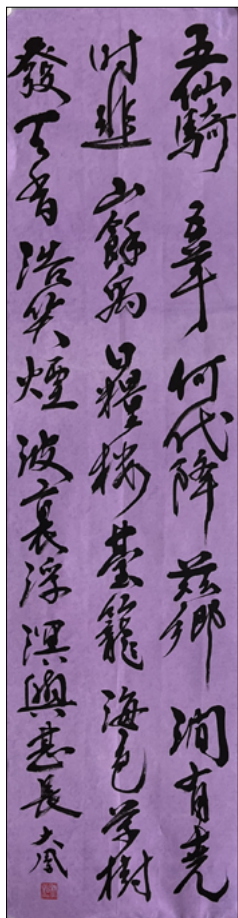 五仙騎五羊何代降茲鄉澗有堯
时韭山餘禹日糧樓臺籠海色草樹
發天香浩笑煙波裏浮溟興甚長